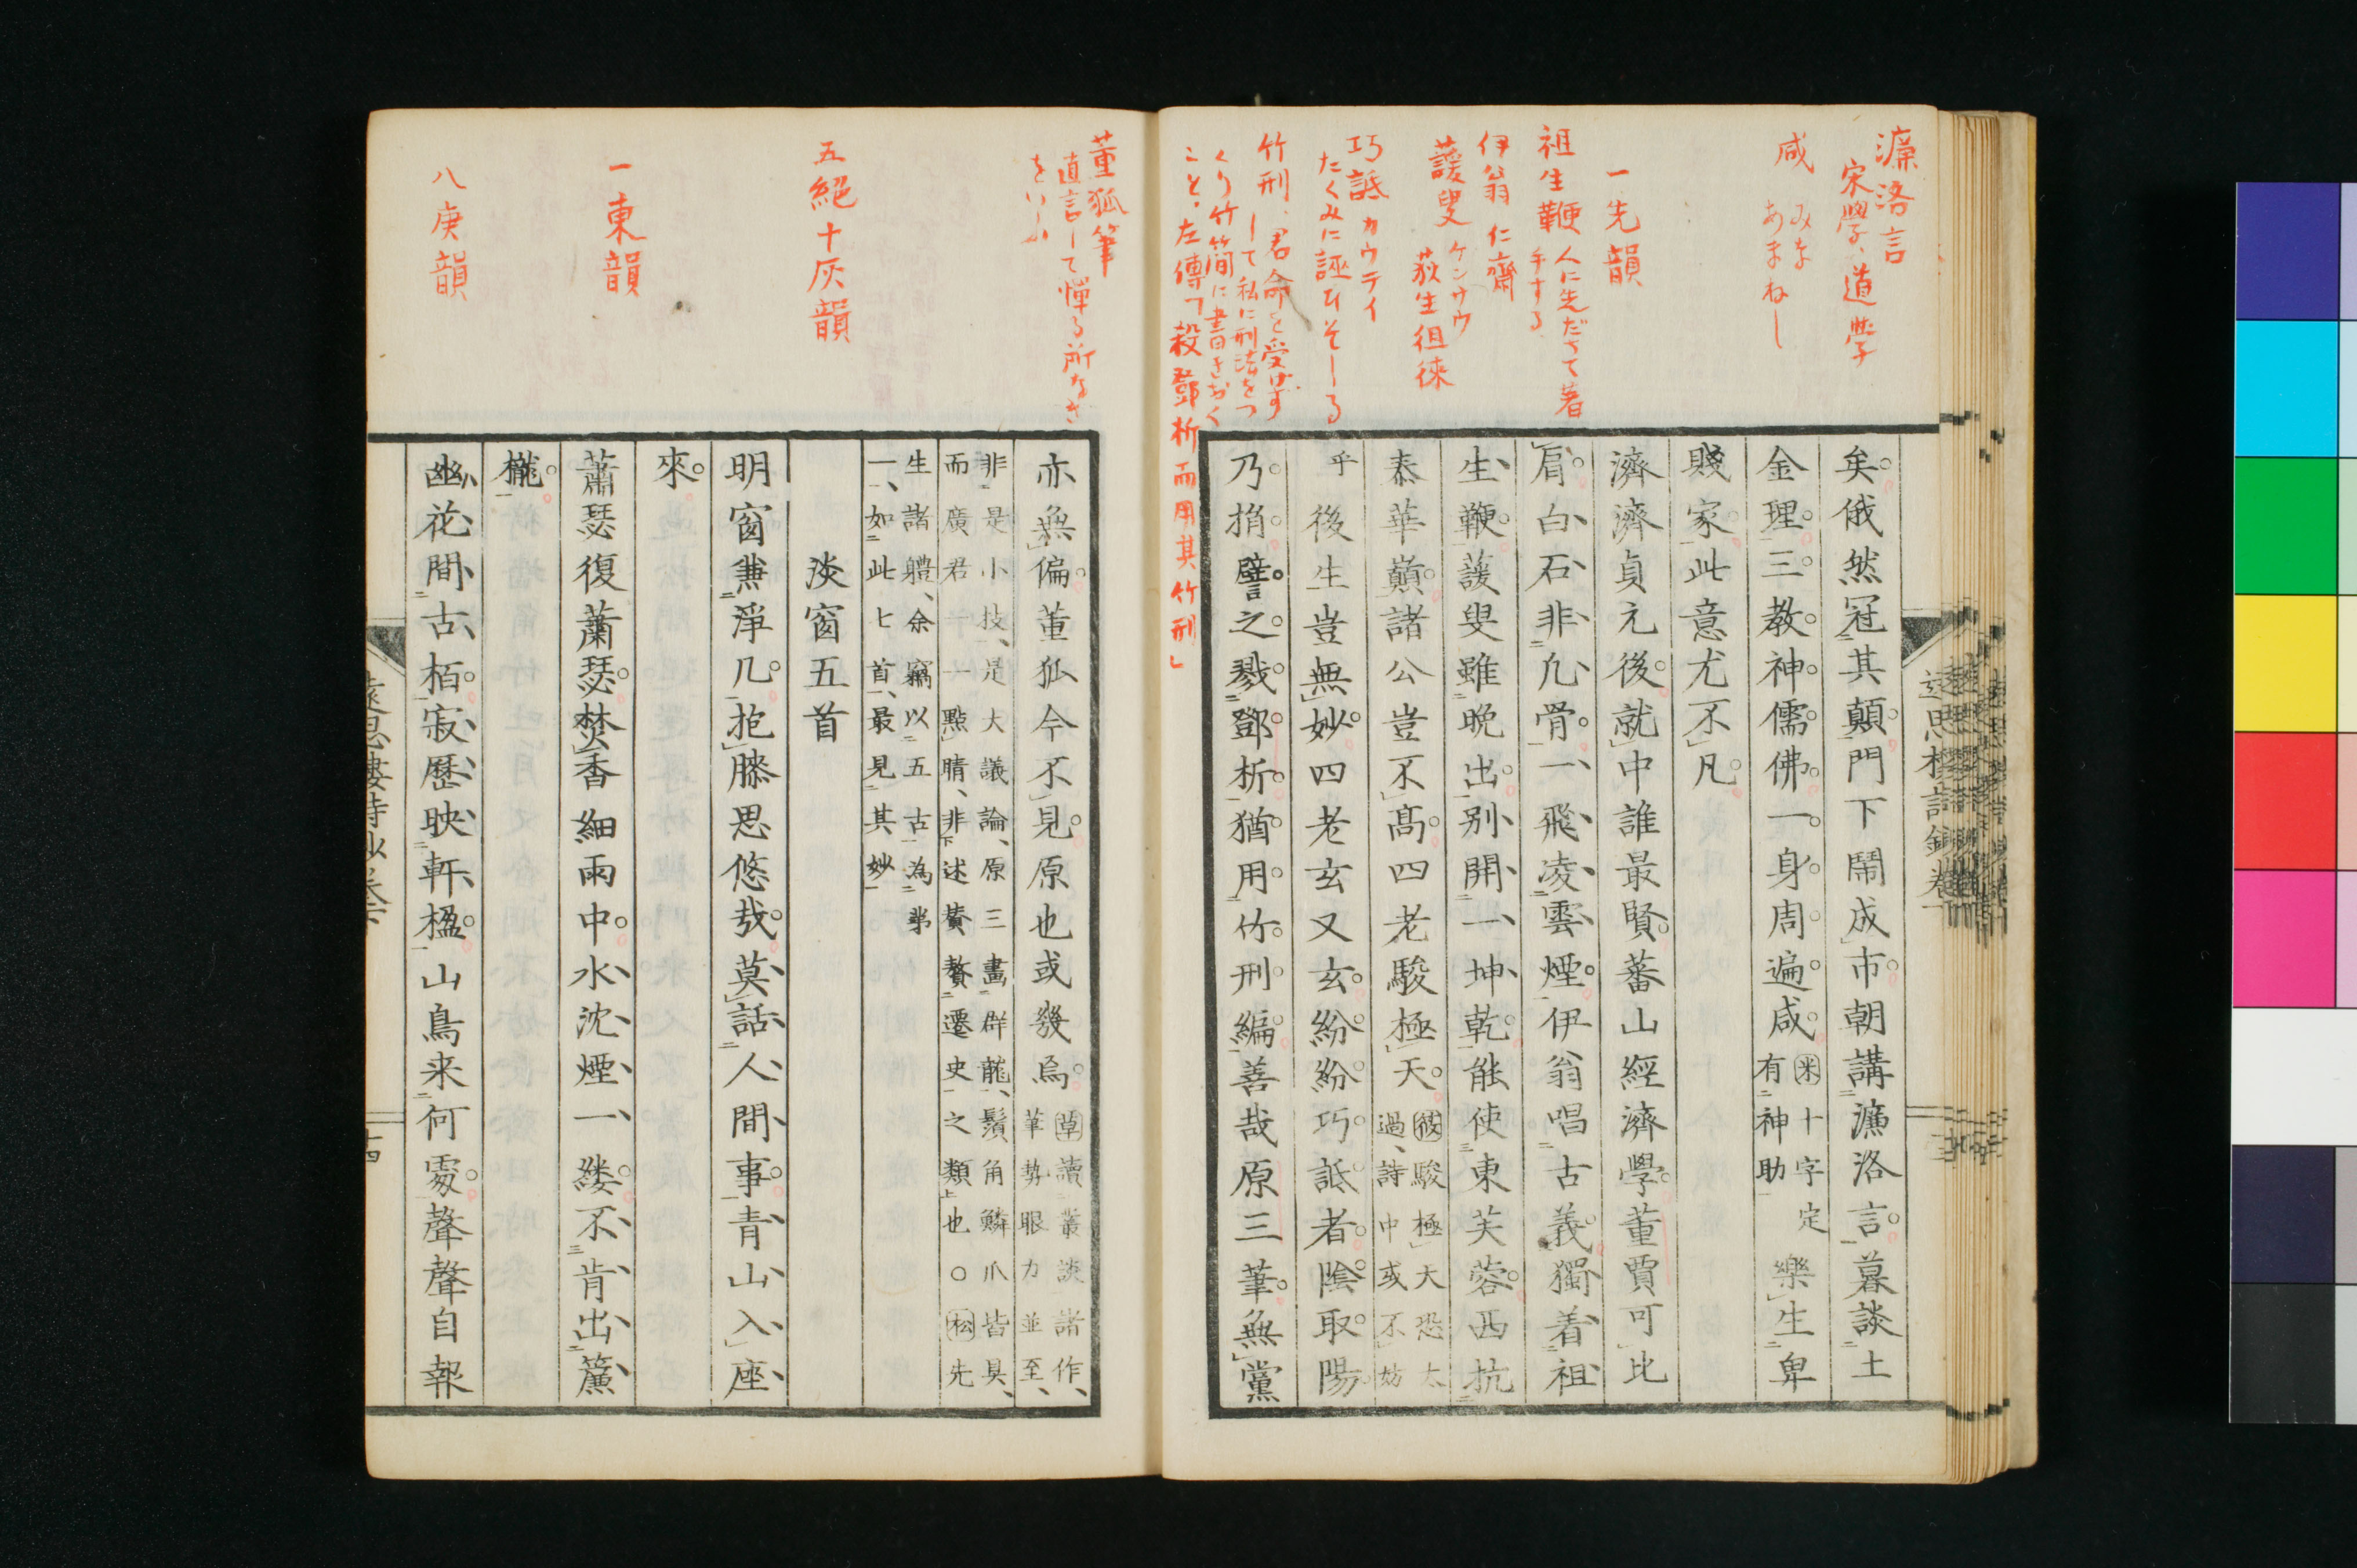 濂洛言
宋學、道学
咸 みな
あまねし
一先韻
祖生鞭 人に先だちて着
手する
伊翁 仁齋
蘐叟 ケンサウ
荻生徂徠
巧詆 カウテイ
たくみに誣ひそしる
竹刑、君命を受けず
して私に刑法をつ
くり竹簡に書きおく
こと。左傳「殺鄧析而用其竹刑」
矣俄然冠其顛門下鬧成市朝講濂洛言暮談土
金理三教神儒佛一身周遍咸
米十字定
有神助
樂生卑
賤家此意尤不凡
濟濟貞元後就中誰最賢蕃山經濟學董賈可比
肩白石非凡骨一飛凌雲煙伊翁唱古義獨着祖
生鞭蘐叟雖晩出別開一坤乾能使東芙蓉西抗
泰華巔諸公豈不高四老駿極天
筱駿極天恐太
過、詩中或不妨
乎
後生豈無妙四老玄又玄紛紛巧詆者陰取陽
乃捐譬之戮鄧析猶用竹刑編善哉原三筆無黨
遠思樓詩鈔卷下
董狐筆
直言して憚る所なき
をいふ
五絕十灰韻
一東韻
八庚韻
亦無偏董狐今不見原也或幾焉
草讀叢談諸作、
筆勢眼力並至、
非是小技、是大議論、原三畫群龍、鬚角鱗爪皆具、
而廣君一點睛、非述贊贅遷史之類也○松先
生諸體、余竊以五古為第
一、如此七首、最見其妙
淡窗五首
明窗兼淨几抱膝思悠哉莫話人間事青山入座
來
蕭瑟復蕭瑟焚香細雨中水沈煙一縷不肯出簾
櫳
幽花間古栢寂歷映軒楹山鳥来何處聲聲自報
遠思樓詩鈔卷下
十四